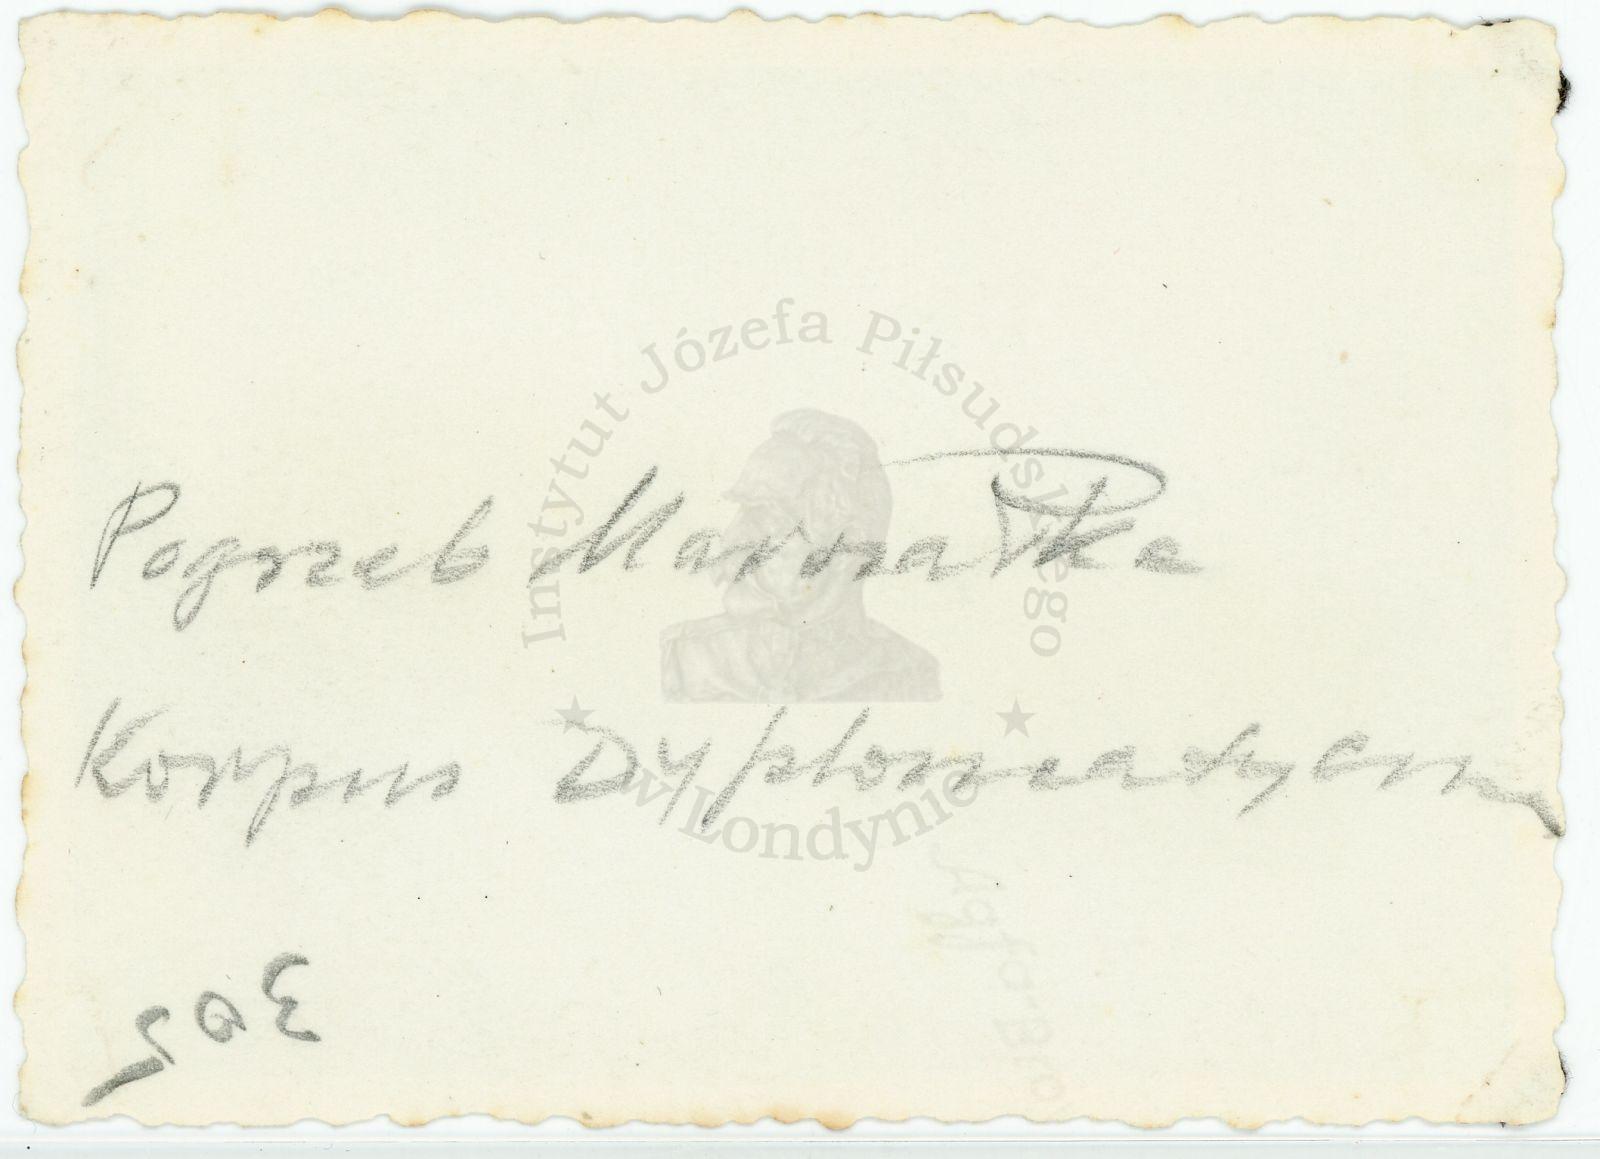 Instytut Józefa Piłsudskiego
Pogrzeb Marszałka
Korpus Dyplomatyczny
w Londynie
305